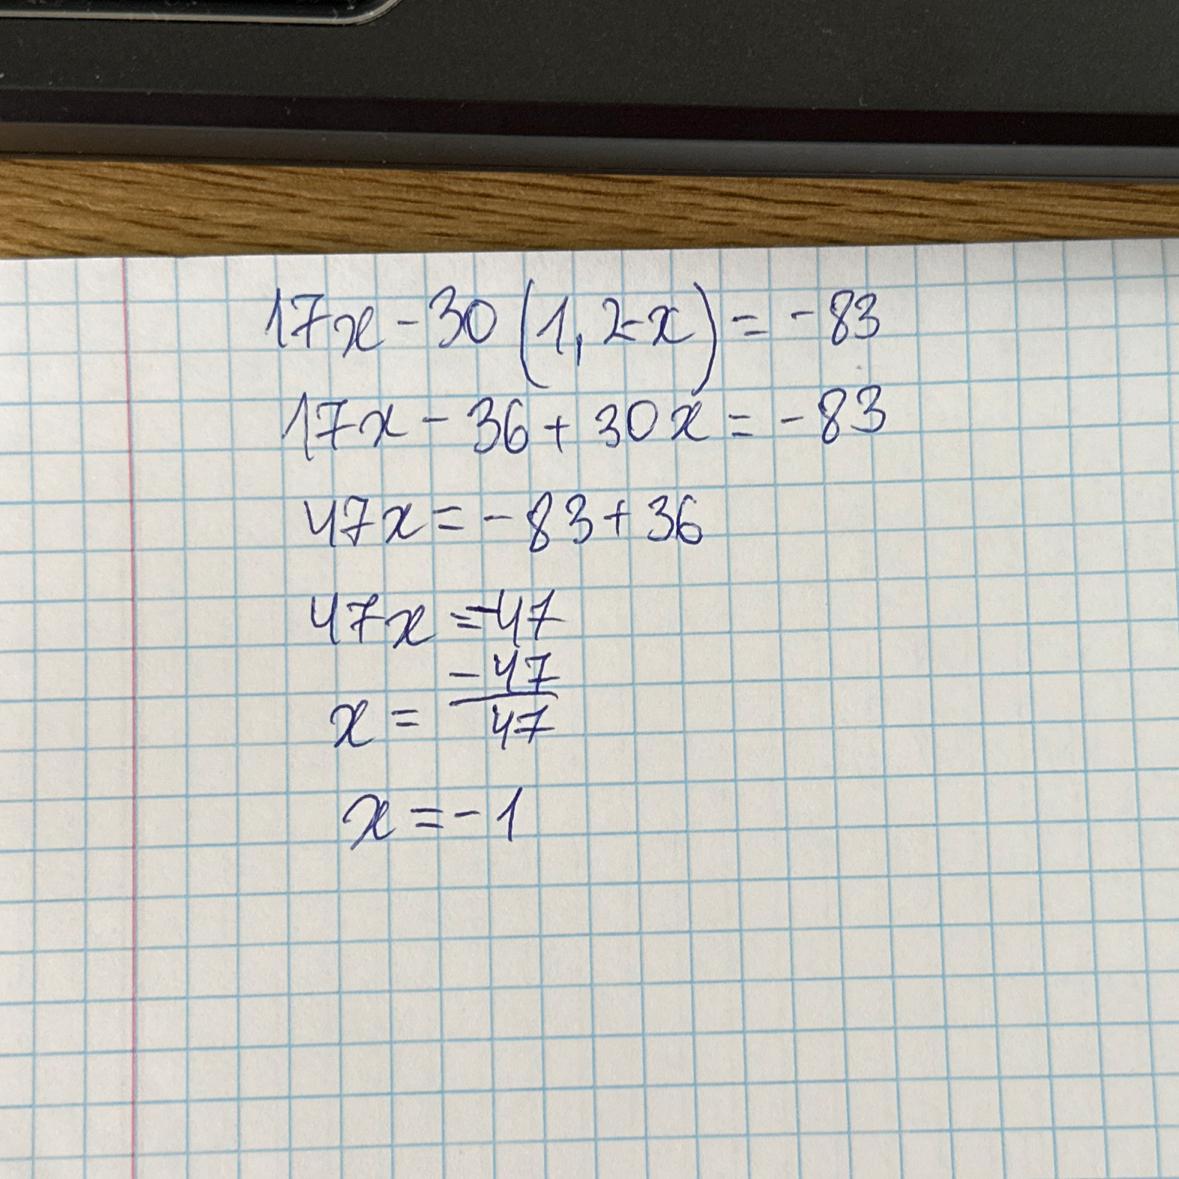 17x - 30 (1,2-x) = -83
17x - 36 + 30x = -83
47x = -83 + 36
47x = -47
x = -47/47
x = -1